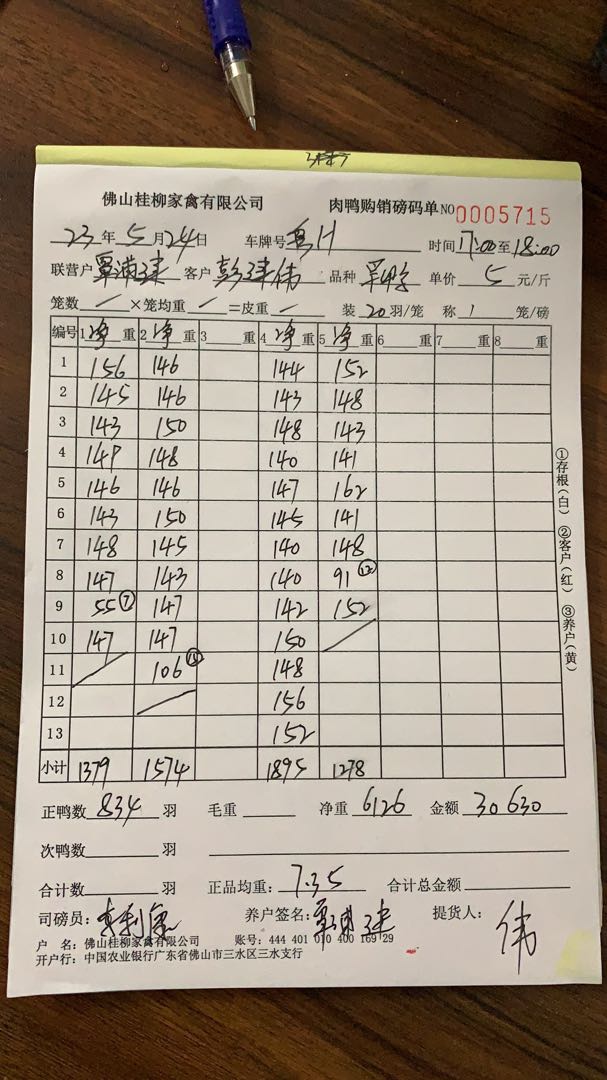 佛山桂柳家禽有限公司 肉鸭购销磅码单 NO 0005715
23年5月24日 车牌号 时间17:00至18:00
联营户 覃浦建 客户 彭建伟 品种 单价 5 元/斤
笼数 / ×笼均重 / =皮重 / 装 20 羽/笼 称 1 笼/磅
编号 1 净 重 2 净 重 3 重 4 净 重 5 净 重 6 重 7 重 8 重
1 156 146 144 152
2 145 146 143 148
3 143 150 148 143
4 149 148 140 141
5 146 146 147 162
6 143 150 145 141
7 148 145 140 148
8 147 143 140 91 ⑫
9 55 ⑦ 147 142 152
10 147 147 150 /
11 / 106 ⑮ 148
12 / 156
13 152
小计 1379 1574 1895 1278
正鸭数 834 羽 毛重 净重 6126 金额 30630
次鸭数 羽
合计数 羽 正品均重: 7.35 合计总金额
司磅员: 养户签名: 覃浦建 提货人: 伟
户 名: 佛山桂柳家禽有限公司 账号: 444 401 010 400 169 29
开户行: 中国农业银行广东省佛山市三水区三水支行
①存根(白) ②客户(红) ③养户(黄)